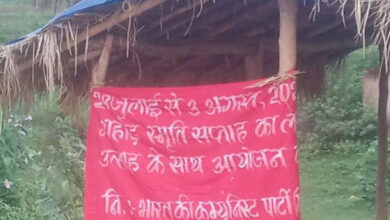 28 जुलाई से 3 अगस्त, 20
शहीद स्मृति सप्ताह का
उत्साह के साथ आयोजन
नि.:- भारत की कम्युनिस्ट पार्टी